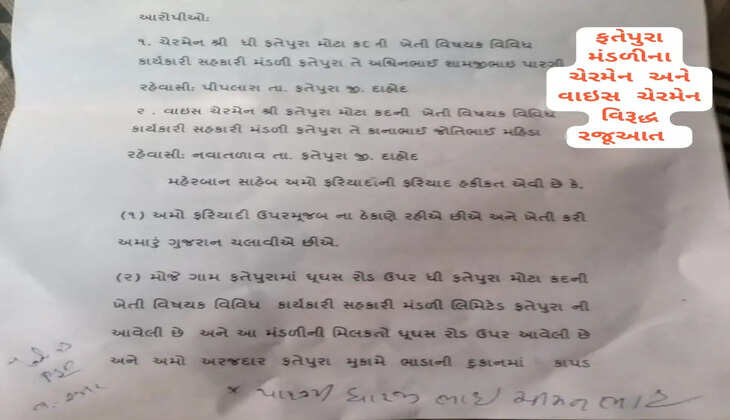 આરોપીઓ:
૧. ચેરમેન શ્રી ધી ફતેપુરા મોટા કદ ની ખેતી વિષયક વિવિધ
કાર્યકારી સહકારી મંડળી ફતેપુરા તે અશ્વિનભાઈ શામજીભાઇ પારગી
રહેવાસી: પીપલારા તા. ફતેપુરા જી. દાહોદ
૨ . વાઇસ ચેરમેન શ્રી ફતેપુરા મોટા કદની ખેતી વિષયક વિવિધ
કાર્યકારી સહકારી મંડળી ફતેપુરા તે કાનાભાઈ જોતિભાઈ મહિડા
રહેવાસી: નવાતળાવ તા. ફતેપુરા જી. દાહોદ
મહેરબાન સાહેબ અમો ફરિયાદીની ફરિયાદ હકીકત એવી છે કે.
(૧) અમો ફરિયાદી ઉપરમુજબ ના ઠેકાણે રહીએ છીએ અને ખેતી કરી
અમારું ગુજરાન ચલાવીએ છીએ.
(૨) મોજે ગામ ફતેપુરામાં ઘૂઘસ રોડ ઉપર ધી ફતેપુરા મોટા કદની
ખેતી વિષયક વિવિધ કાર્યકારી સહકારી મંડળી લિમિટેડ ફતેપુરા ની
આવેલી છે અને આ મંડળીની મિલકતો ઘૂઘસ રોડ ઉપર આવેલી છે
અને અમો અરજદાર ફતેપુરા મુકામે ભાડાની દુકાનમાં કાપડ
ફતેપુરા
મંડળીના
ચેરમેન અને
વાઇસ ચેરમેન
વિરૂદ્ધ
રજૂઆત